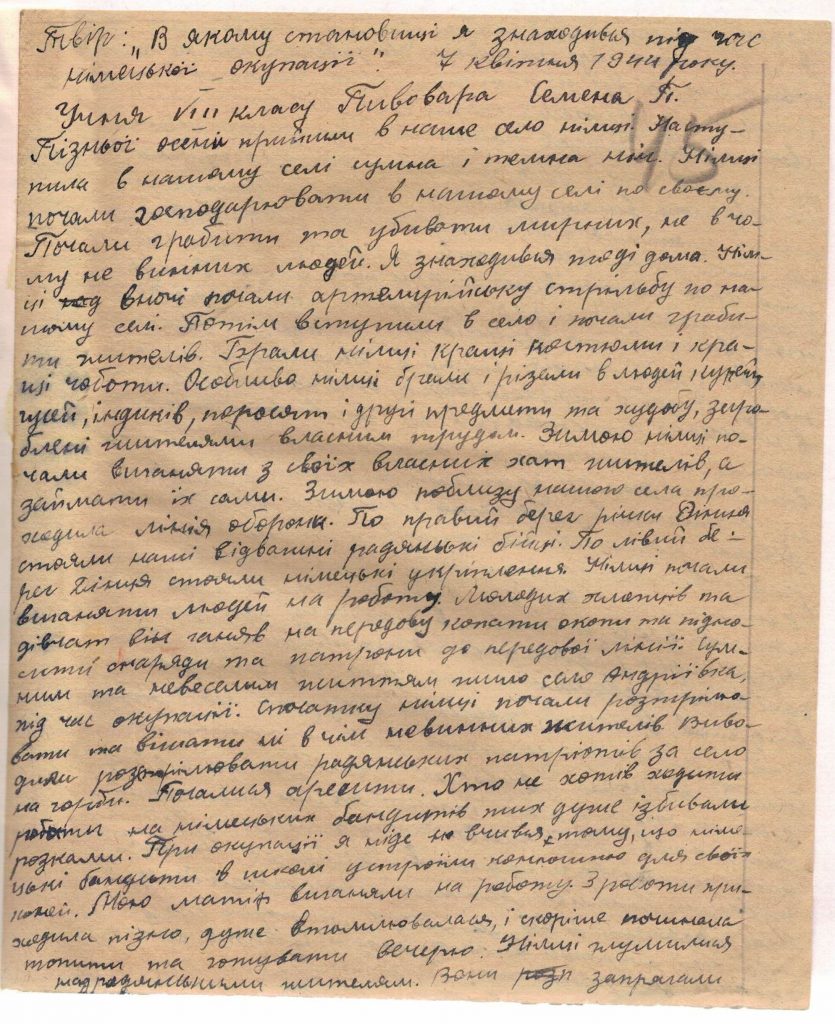 Твір: „В якому становищі я знаходився під час
німецької окупації". 7 квітня 1944 року.
Учня VIII класу Пивовара Семена П.
15
Пізньої осени прийшли в наше село німці. Насту-
пила в нашому селі сумна і темна ніч. Німці
почали господарювати в нашому селі по своєму.
Почали грабити та убивати мирних, не в чо-
му не вінних людей. Я знаходився тоді дома. Нім-
ці вночі почали артелирійську стрільбу по на-
шому селі. Потім вступили в село і почали граби-
ти жителів. Брали німці кращі костюми і кра-
щі чоботи. Особливо німці брали і різали в людей, курей,
гусей, індиків, поросят і другі предмети та худобу, зиро-
блені жителями власним трудом. Зимою німці по-
чали виганяти з своїх власних хат жителів, а
займати їх сами. Зимою поблизу нашого села про-
ходила лінія оборони. По правий берег річки Дінця
стояли наші відважні радянські бійці. По лівий бе-
рег Дінця стояли німецькі укріплення. Німці почали
виганяти людей на роботу. Молодих хлопців та
дівчат він ганяв на передову копати окопи та підно-
сити снаряди та патрони до передової лінії. Сум-
ним та невеселим життям жило село Андріївка,
під час окупації. Спочатку німці почали розстрілю-
вати та вішати ні в чім невинних жителів. Виво-
дили розстрілювати радянських патріотів за село
на горби. Почалися арешти. Хто не хотів ходити
на німецьких бандитів тих дуже ізбивали
розками. При окупації я ніде не вчився, тому, що німе-
цькі бандити в школі устроїли конюшню для своїх
коней. Мою матір виганяли на роботу. З роботи при-
ходила пізно, дуже втомлювалася, і скоріше починала
топити та готувати вечерю. Німці глумилися
над радянськими жителями. Вони запрягали